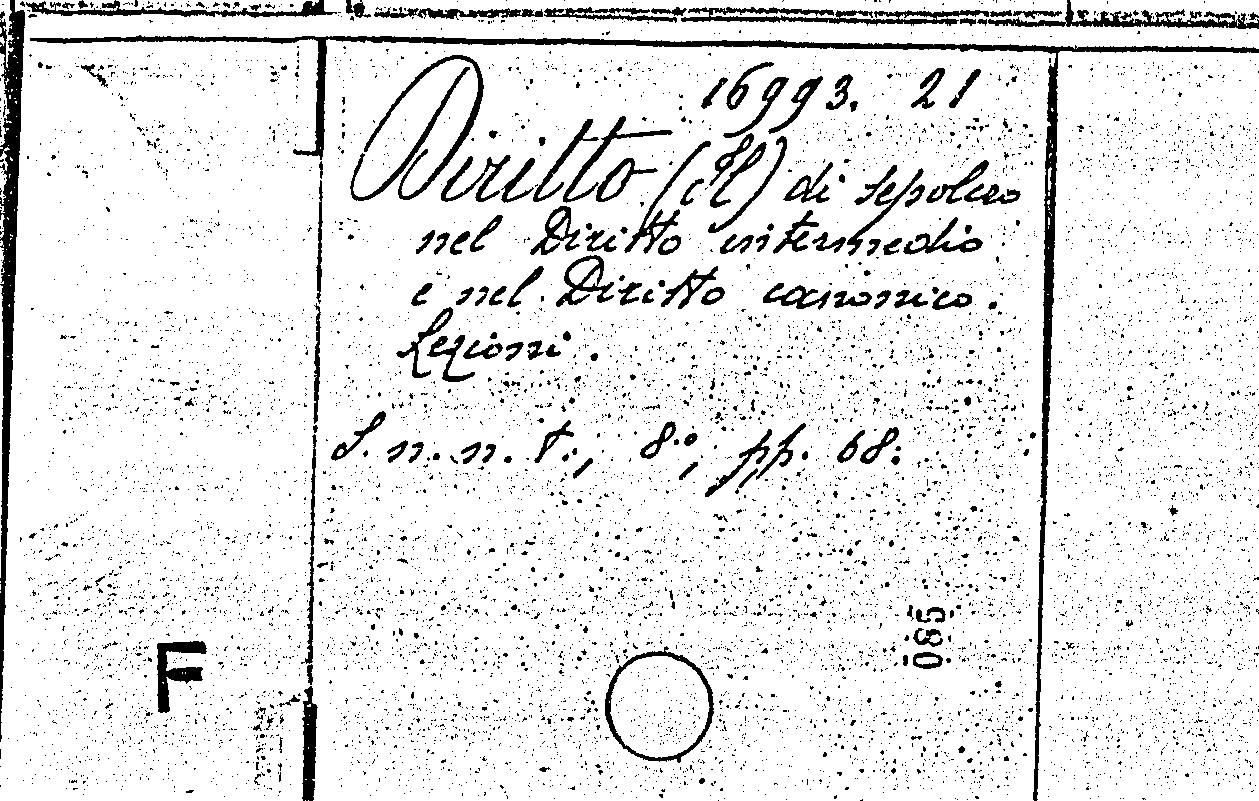 16993. 21
Diritto (Il) di sepolcro
nel Diritto intermedio
e nel Diritto canonico.
Lezioni.
S. n. n. t., 8°, pp. 68.
085
F